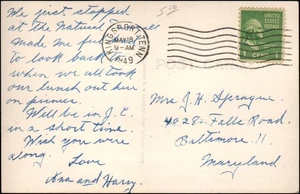 We just stopped
at the Natural
Made me feel
to look back
when we all took
our lunch out here
on
Will be in J. C.
in a short time.
Wish you were
along. Love
Ana and Harry
5¢
KINGSPORT, TENN.
MAY 18
9 - AM
1949
UNITED STATES
POSTAGE
1
POST CARD
Mrs J. H. Sprague
4028 - Falls Road
Baltimore 11
Maryland